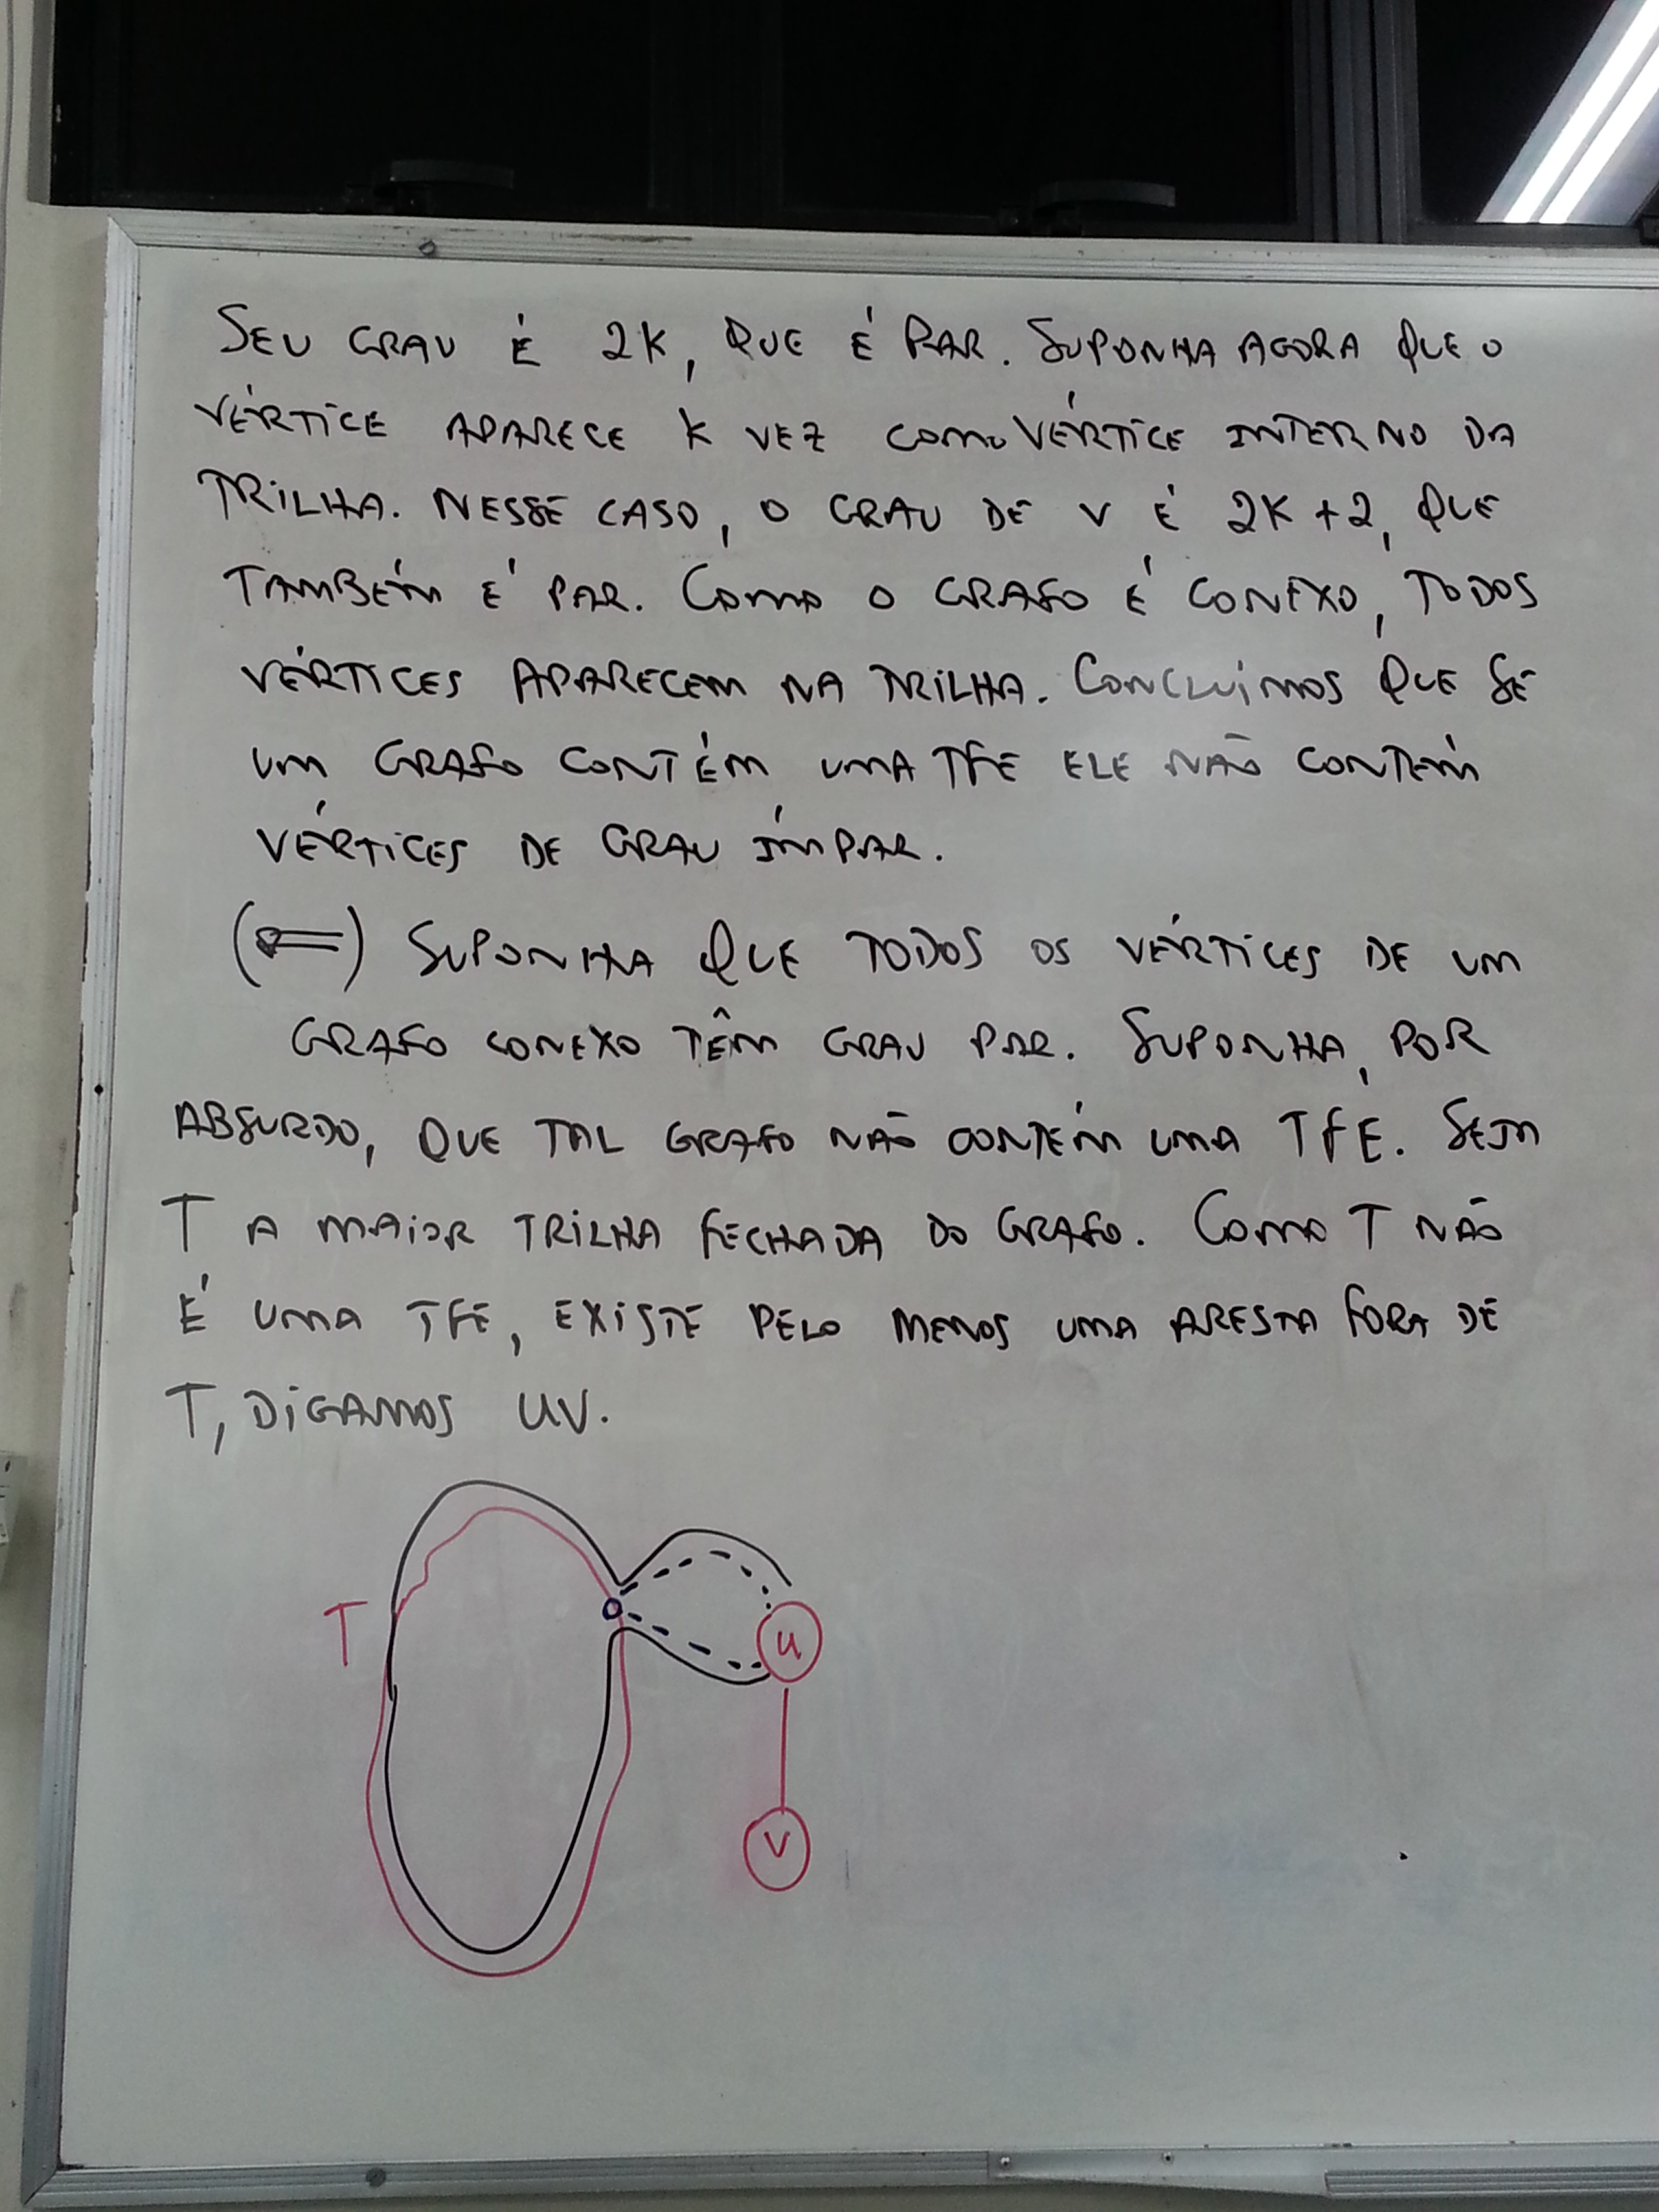 SEU GRAU É 2K, QUE É PAR. SUPONHA AGORA QUE O
VÉRTICE APARECE K VEZ COMO VÉRTICE INTERNO DA
TRILHA. NESSE CASO, O GRAU DE V É 2K+2, QUE
TAMBÉM É PAR. COMO O GRAFO É CONEXO, TODOS
VÉRTICES APARECEM NA TRILHA. CONCLUÍMOS QUE SE
UM GRAFO CONTÉM UMA TFE ELE NÃO CONTÉM
VÉRTICES DE GRAU ÍMPAR.
(⇐) SUPONHA QUE TODOS OS VÉRTICES DE UM
GRAFO CONEXO TÊM GRAU PAR. SUPONHA, POR
ABSURDO, QUE TAL GRAFO NÃO CONTÉM UMA TFE. SEJA
T A MAIOR TRILHA FECHADA DO GRAFO. COMO T NÃO
É UMA TFE, EXISTE PELO MENOS UMA ARESTA FORA DE
T, DIGAMOS UV.
T
U
V